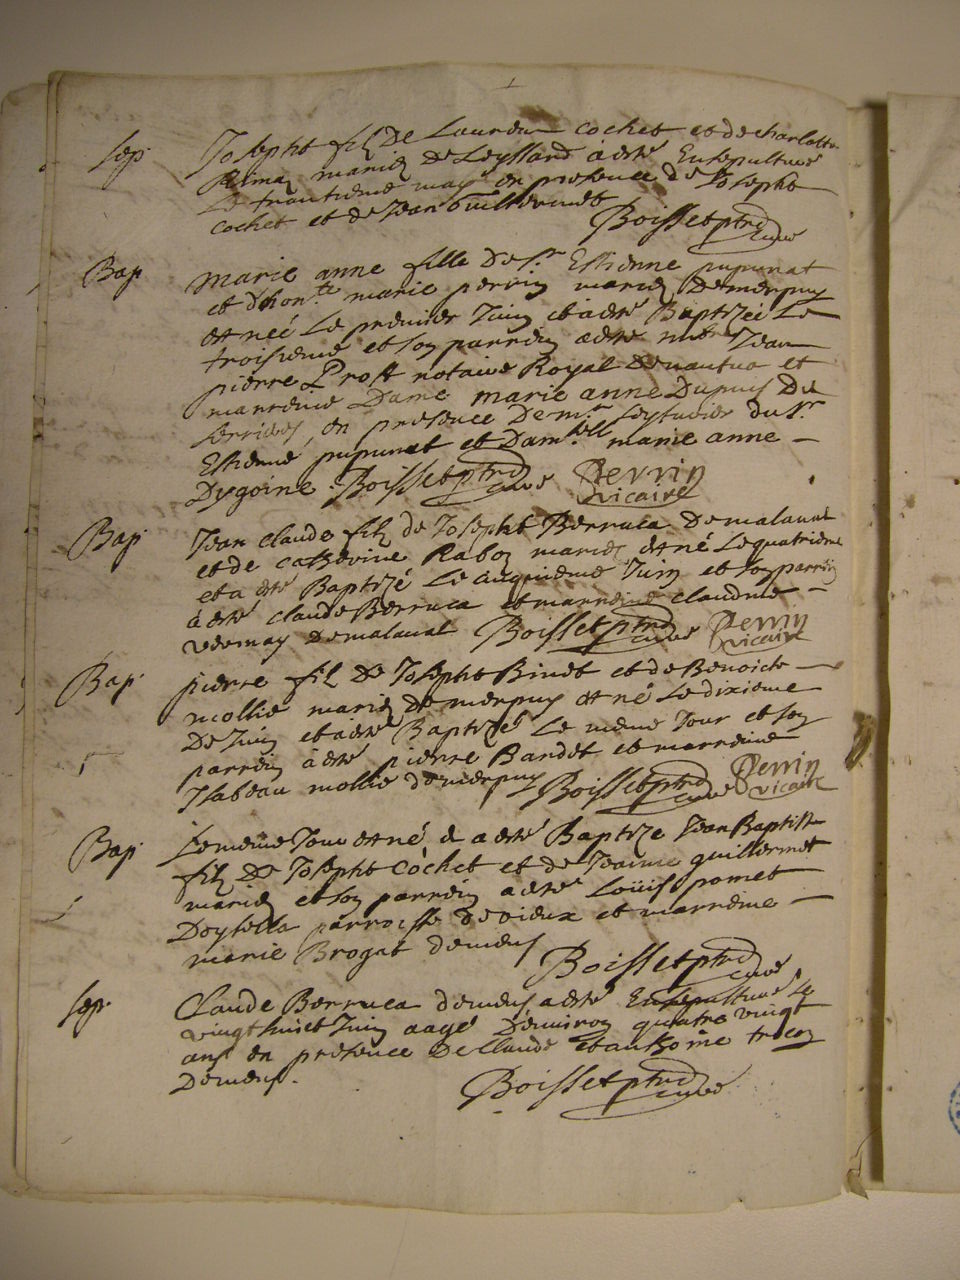 Sep. Josepht filz De Laurens cochet et de charlotte
mariez De Leyssard à esté Ensepulturé
Le trantieme may en presence de Josepht
cochet et de Jean Guillermet
Boisset ptre curé
Bap. Marie anne fille De Sr. Estienne pupunat
et d'hon.te marie perrin mariez Demerpuy
est neé Le premier Juin et à esté Baptizeé Le
troisieme et son parrein à esté mtre Jean
pierre Prost notaire Royal de nantua et
marreine Dame marie anne Dupuis De
Serrieres, en presence De mr. Leytuvier du Sr.
Estienne pupunat et Dam.lle marie anne
Dygoine. Boisset ptre curé Perrin vicaire
Bap. Jean claude filz de Josepht Berruca Demalaval
et de catherine Raboz mariez est né Le quatrieme
et a esté Baptizé Le cinquieme Juin et son parrein
à esté claude Berruca et marreine claudine
vuernay Demalaval Boisset ptre curé Perrin vicaire
Bap. pierre filz de Josepht Binet et de Benoicte
mollie mariez Demerpuy est né Le dixieme
De Juin et à esté Baptizé Le meme Jour et son
parrein à esté pierre Bandet et marreine
Isabeau mollie demerpuy Boisset ptre curé Perrin vicaire
Bap. Le meme Jour est né & a esté Baptize Jean Baptiste
filz De Josepht Cochet et de Jeanne guillermet
mariez et son parrein a esté Loüis pomet
Doysella parroisse de vieux et marreine
marie Brogat demens
Boisset ptre curé
Sep. Claude Berruca demens a esté Ensepulturé Le
vingt huict Juin aagé Denviron quatre vingt
ans en presence De Claude et anthoine
Demens.
Boisset ptre curé